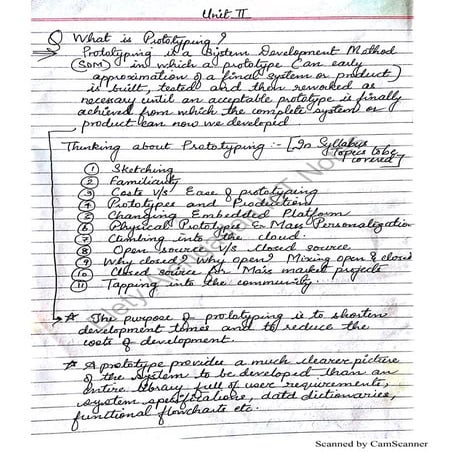 Unit II
Q What is Prototyping ?
→ Prototyping is a System Development Method
(SDM) in which a prototype (an early
approximation of a final system or product)
is built, tested and then reworked as
necessary until an acceptable prototype is finally
achieved from which the complete system or
product can now we developed
Thinking about Prototyping :- [In Syllabus
Topics to be
covered]
1 Sketching
2 Familiarity
3 Costs v/s Ease of prototyping
4 Prototypes and Production
5 Changing Embedded Platform
6 Physical Prototypes & Mass Personalization
7 Climbing into the cloud.
8 Open source v/s closed source
9 Why closed? Why open? Mixing open & closed
10 Closed source for Mass market projects
11 Tapping into the community.
→ * The purpose of prototyping is to shorten
development times and to reduce the
costs of development.
* A prototype provides a much clearer picture
of the system to be developed than an
entire library full of user requirements,
system specifications, data dictionaries,
functional flowcharts etc.
Scanned by CamScanner